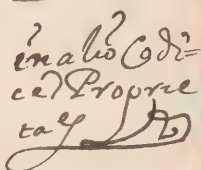 in alio Codi=
ce Proprie
tas